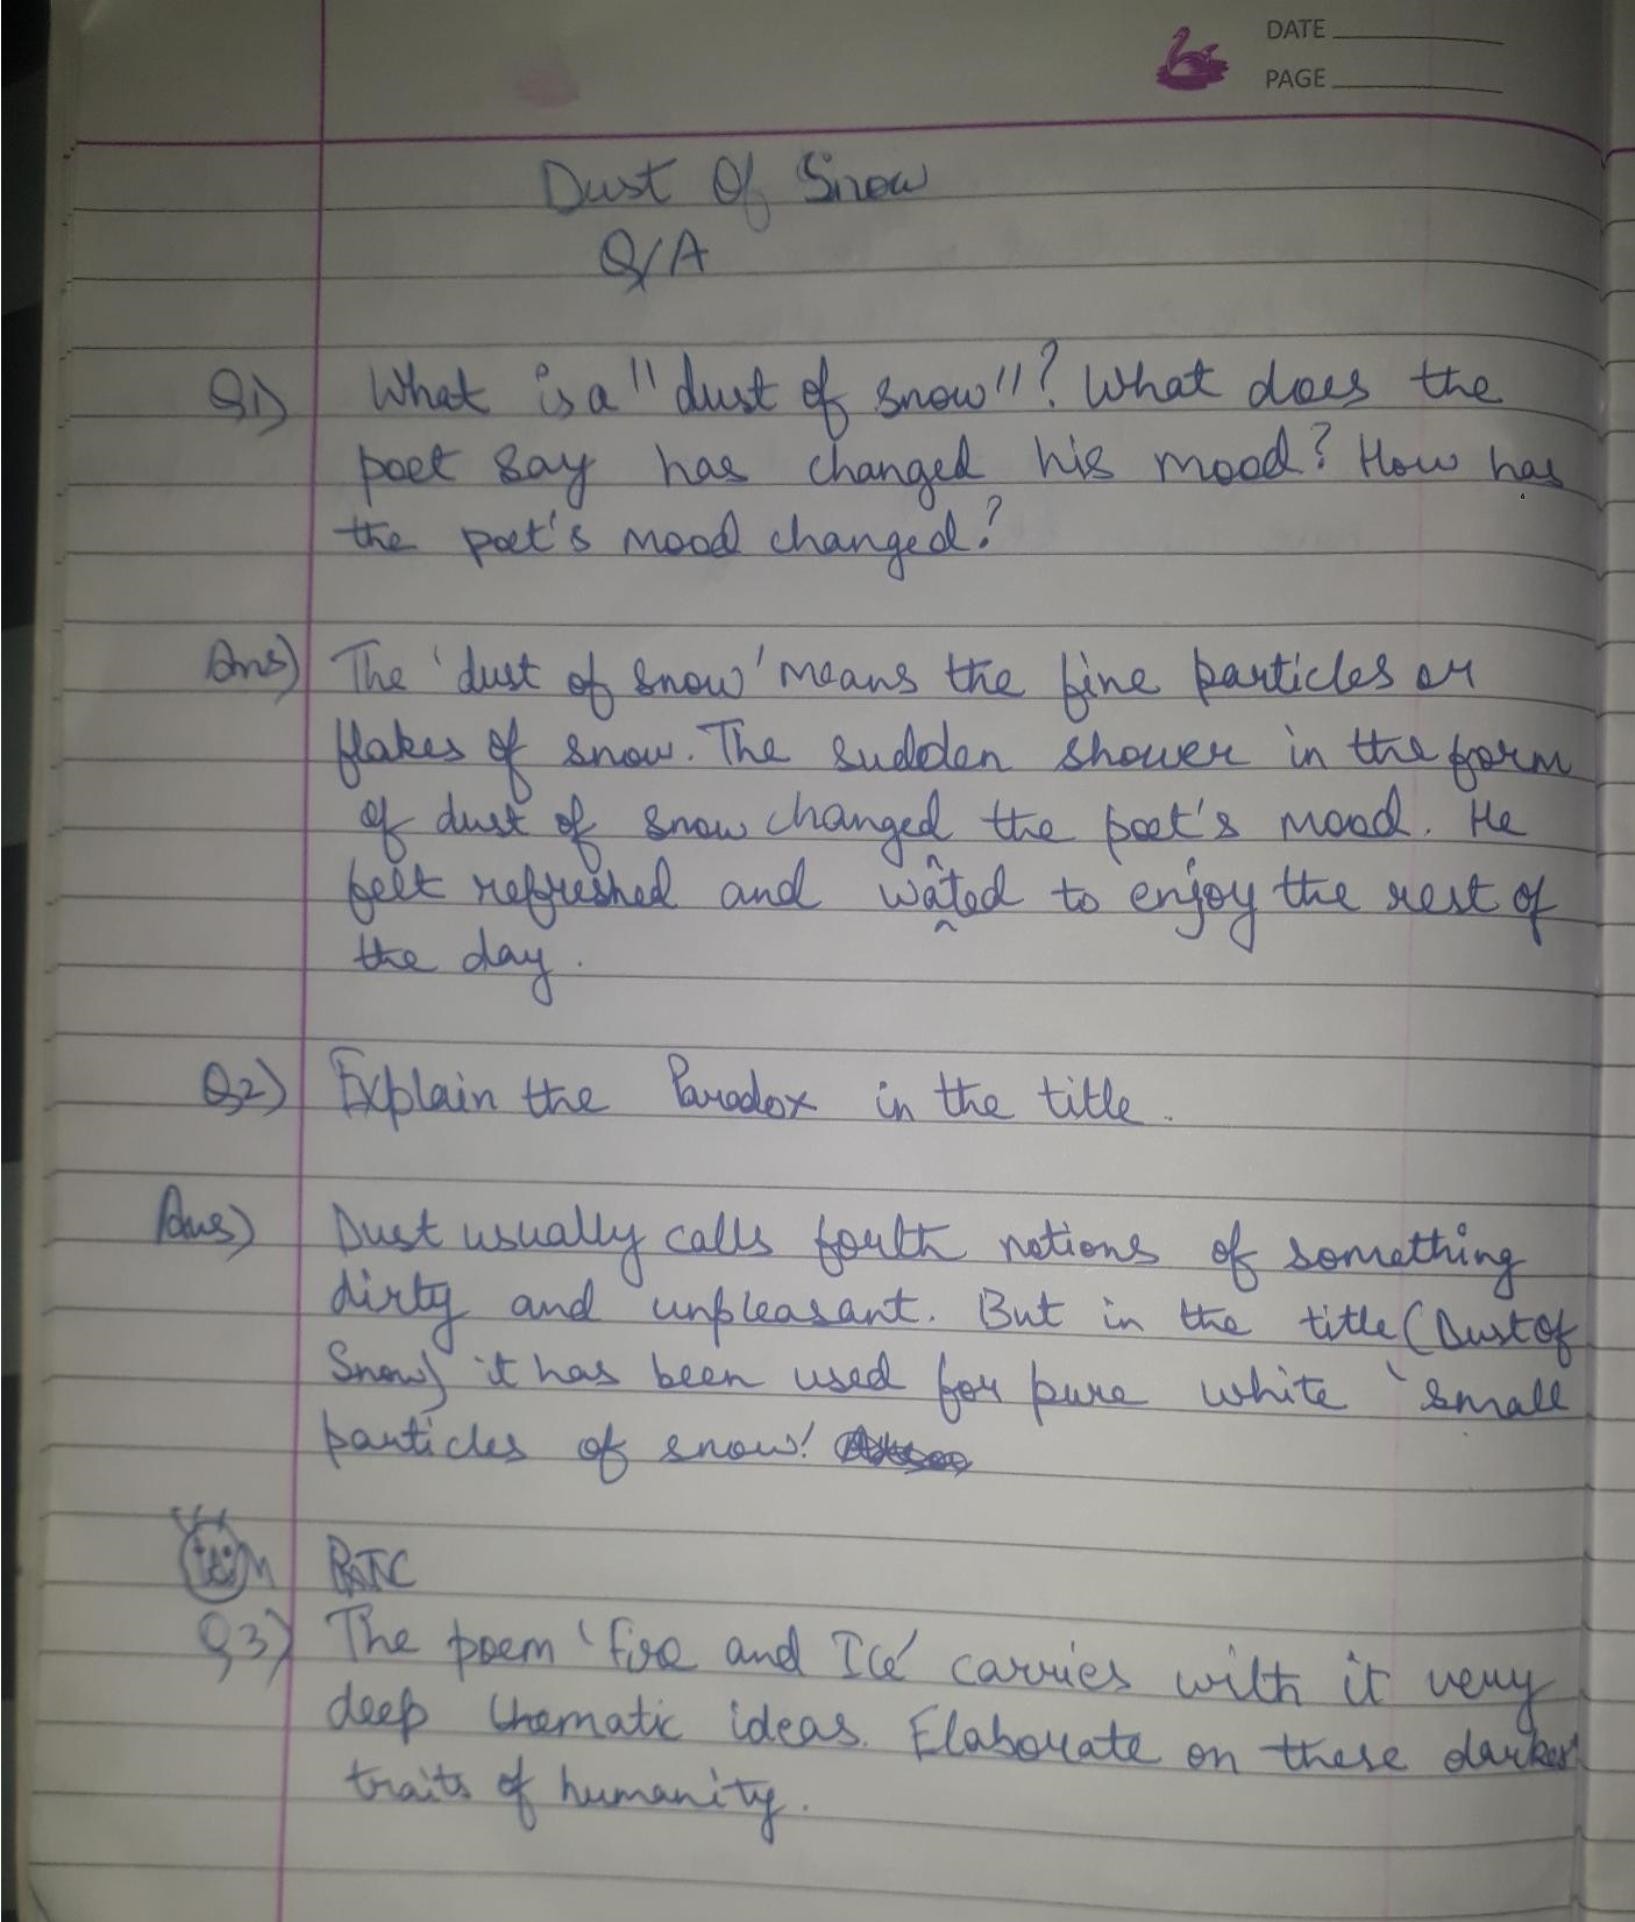 DATE
PAGE
Dust Of Snow
Q/A
Q1) What is a "dust of snow"? What does the
poet say has changed his mood? How has
the poet's mood changed?
Ans) The 'dust of snow' means the fine particles or
flakes of snow. The sudden shower in the form
of dust of snow changed the poet's mood. He
felt refreshed and wanted to enjoy the rest of
the day.
Q2) Explain the Paradox in the title.
Ans) Dust usually calls fourth notions of something
dirty and unpleasant. But in the title (Dust of
Snow) it has been used for pure white 'small
particles of snow'.
Q3) The poem 'Fire and Ice' carries with it very
deep thematic ideas. Elaborate on these darker
traits of humanity.